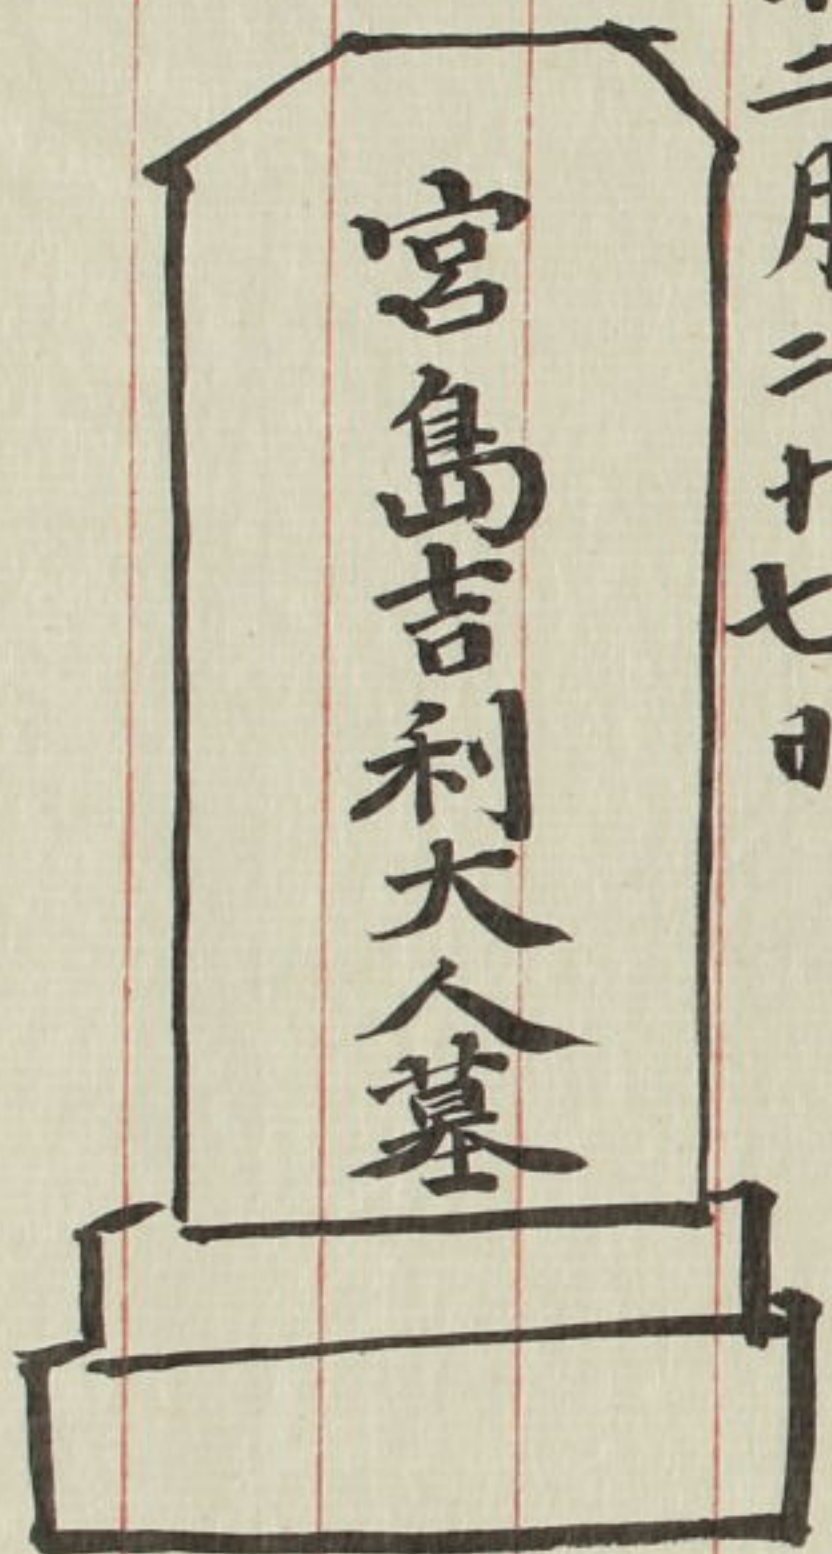 二月二十七日
宮島吉利大人墓